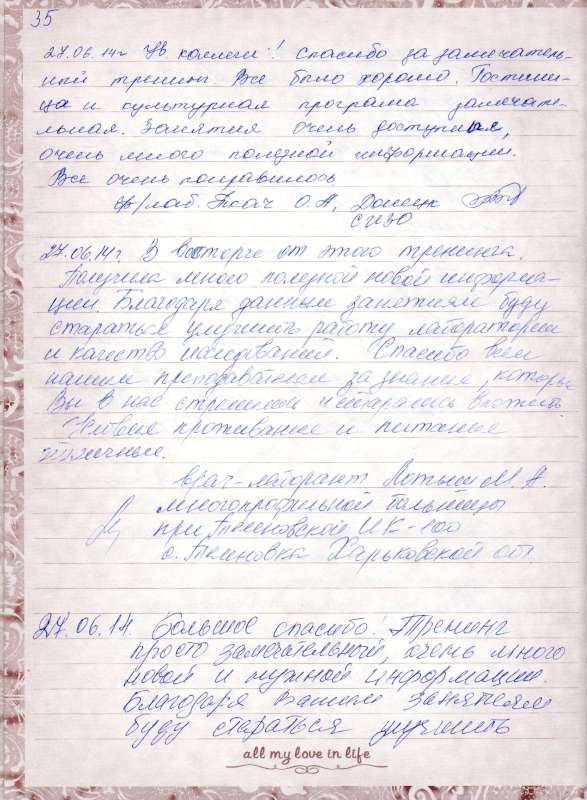 35
27.06.14г Ув. коллеги! Спасибо за замечатель-
ный тренинг. Все было хорошо. Гостини-
ца и культурная програма замеча-
льная. Занятия очень доступные,
очень много полезной информации.
Все очень понравилось
О.А, Донецк
СИЗО
27.06.14г. В восторге от этого тренинга.
Получила много полезной новой информа-
ции. Благодаря данным занятиям буду
стараться улучшить работу лаборатории
и качество исследований. Спасибо всем
нашим преподавателям за знания, которые
Вы в нас стремились и старались вложить
Условия проживания и питания
отличные.
врач-лаборант М.А.
многопрофильной больницы
при Темновской ИК-100
с. Темновка Харьковской от.
27.06.14. Большое спасибо! Тренинг
просто замечательный, очень много
новой и нужной информации.
Благодаря Вашим занятиям
буду стараться улучшить
all my love in life